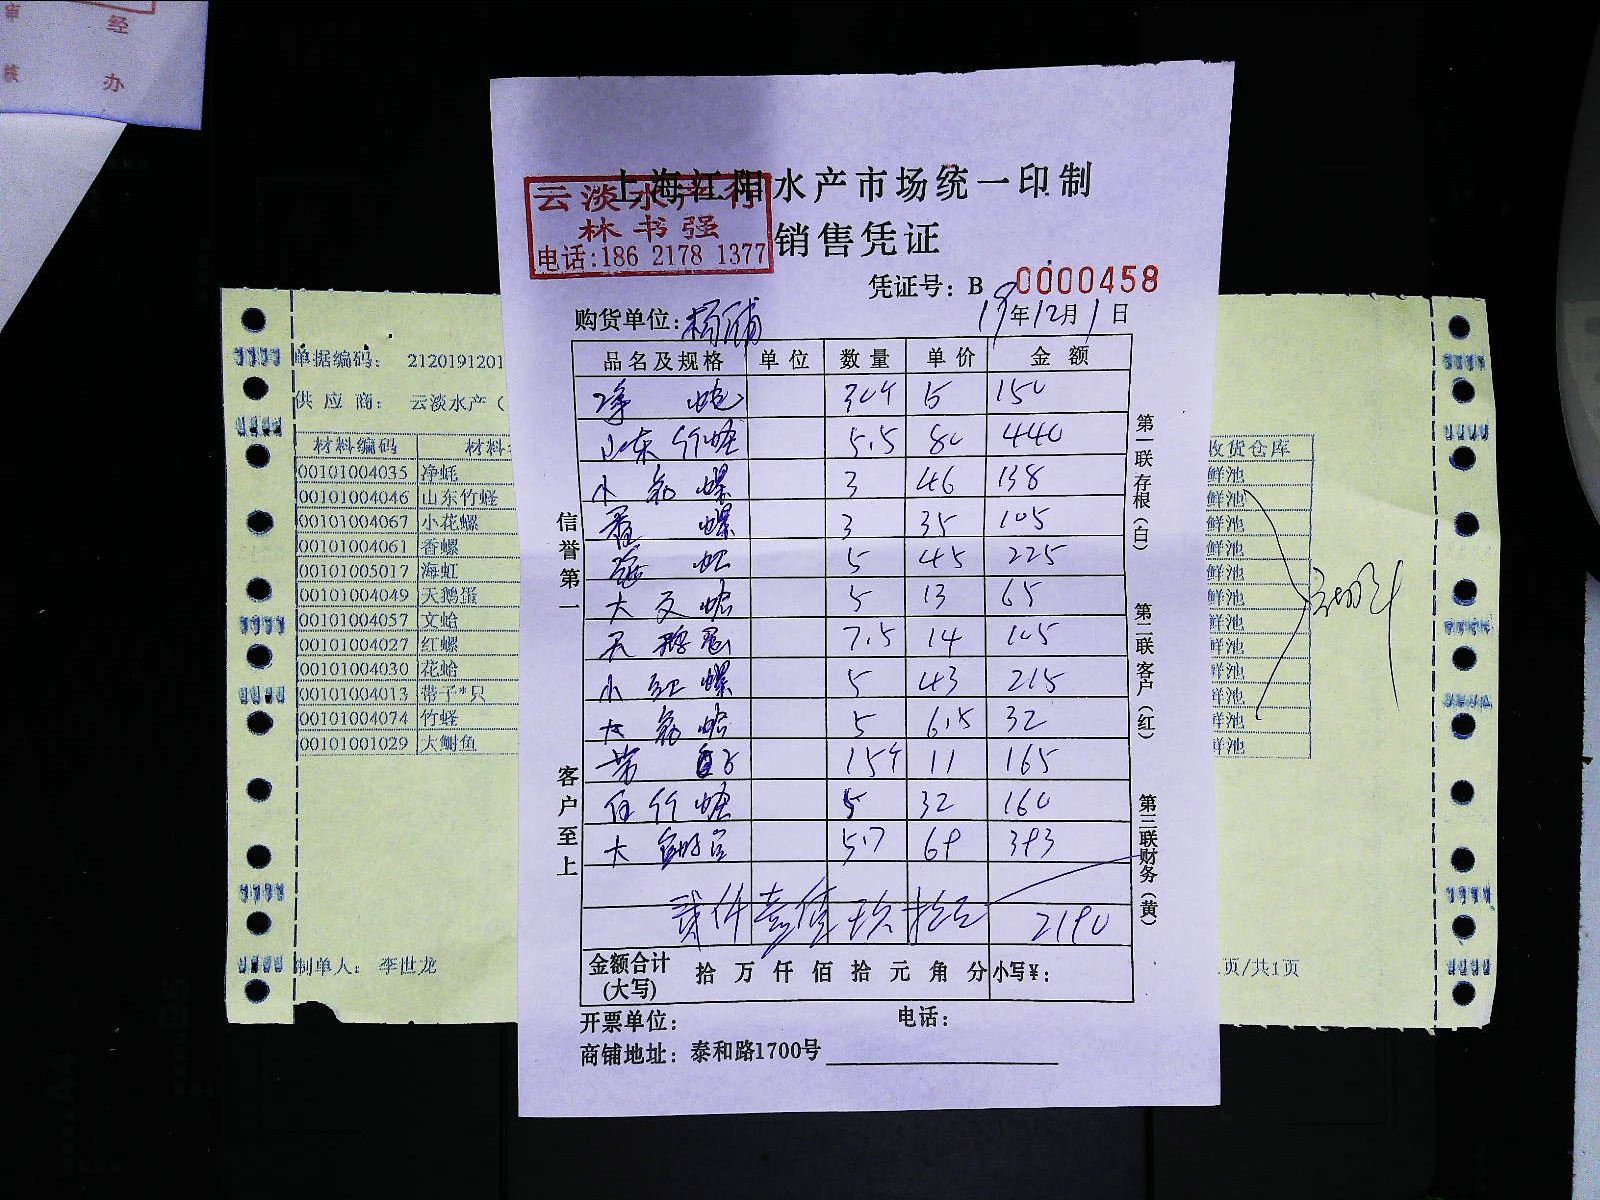 经
办
审
核
上海江阳水产市场统一印制
云淡水产行
林书强
电话:186 2178 1377
销售凭证
凭证号: B 0000458
购货单位: 19年12月1日
品名及规格 单位 数量 单价 金额
净 15 150
山东竹蛏 5.5 80 440
小花螺 3 46 138
香螺 3 35 105
海虹 5 45 225
大文蛤 5 13 65
天鹅蛋 7.5 14 105
小红螺 5 43 215
大花蛤 5 6.5 32
11 165
竹蛏 5 32 160
大 5.7 69 393
贰仟壹佰玖拾元 2190
金额合计
(大写) 拾万仟佰拾元角分 小写¥:
开票单位: 电话:
商铺地址: 泰和路1700号
信誉第一
客户至上
第一联存根(白)
第二联客户(红)
第三联财务(黄)
单据编码: 2120191201
供应商: 云淡水产(
材料编码 材料
00101004035 净蚝
00101004046 山东竹蛏
00101004067 小花螺
00101004061 香螺
00101005017 海虹
00101004049 天鹅蛋
00101004057 文蛤
00101004027 红螺
00101004030 花蛤
00101004013 带子*只
00101004074 竹蛏
00101001029 大鲥鱼
制单人: 李世龙
收货仓库
鲜池
鲜池
鲜池
鲜池
鲜池
鲜池
鲜池
鲜池
鲜池
鲜池
鲜池
鲜池
页/共1页